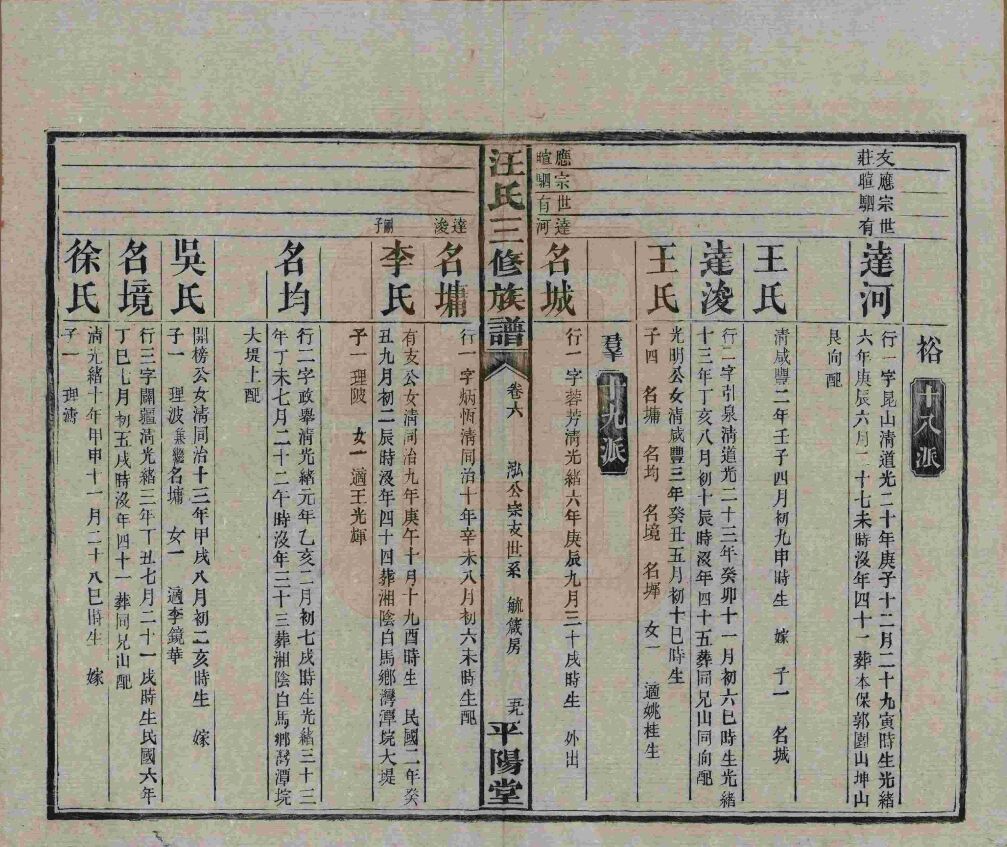 裕 十八派
友應宗世
莊暄駟有
達河
行一字昆山清道光二十年庚子十二月二十九寅時生光緒
六年庚辰六月二十七未時沒年四十一葬本保郭園山坤山
艮向配
王氏
清咸豐二年壬子四月初九申時生 嫁 子一 名城
達浚
行二字引泉清道光二十三年癸卯十一月初六巳時生光緒
十三年丁亥八月初十辰時沒年四十五葬同兄山同向配
王氏
光明公女清咸豐三年癸丑五月初十巳時生
子四 名墉 名均 名境 名墀 女一 適姚桂生
羣 十九派
應宗世達
暄駟有河
名城
行一字蓉芳清光緒六年庚辰九月三十戌時生 外出
汪氏三修族譜 卷六 泓公宗支世系 毓箴房 五九 平陽堂
達浚
名墉
行一字炳恆清同治十年辛未八月初六未時生配
嗣子
李氏
有支公女清同治九年庚午十月十九酉時生 民國二年癸
丑九月初二辰時沒年四十四葬湘陰白馬鄉灣潭垸大堤
子一 理陂 女一 適王光輝
名均
行二字政舉清光緒元年乙亥二月初七戌時生光緒三十三
年丁未七月二十二午時沒年三十三葬湘陰白馬鄉灣潭垸
大堤上配
吳氏
開榜公女清同治十三年甲戌八月初二亥時生 嫁
子一 理波兼繼名墉 女一 適李鏡華
名境
行三字闢疆清光緒三年丁丑七月二十一戌時生民國六年
丁巳七月初五戌時沒年四十一葬同兄山配
徐氏
清光緒十年甲申十一月二十八巳時生 嫁
子一 理濤